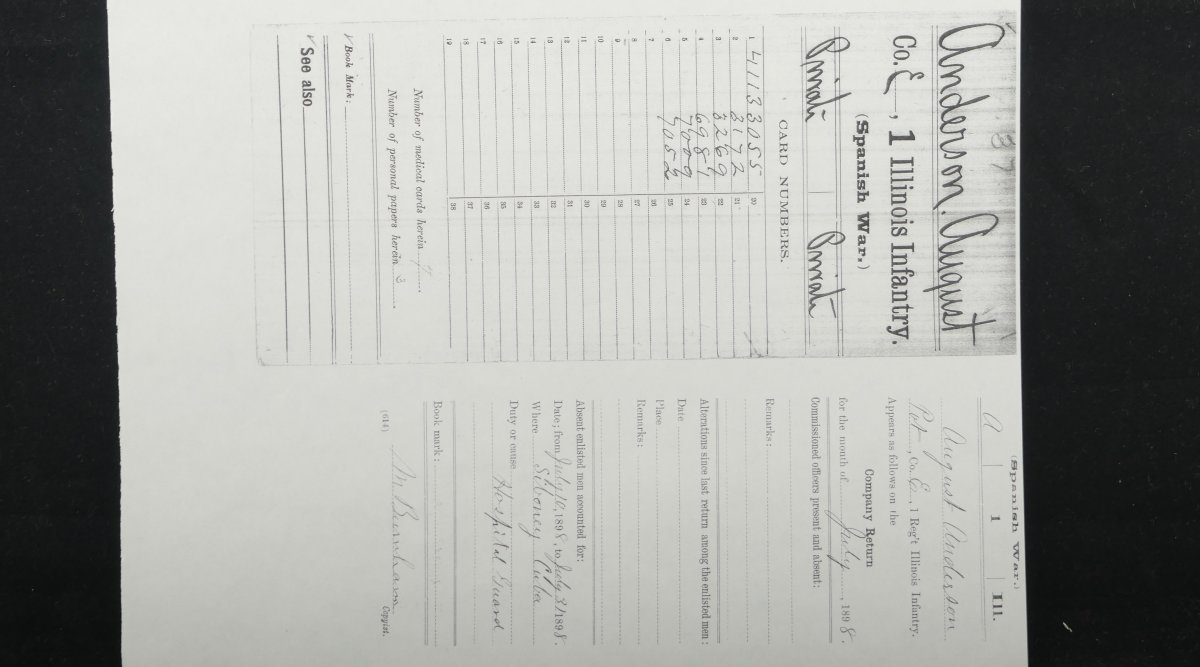 37
Anderson, August
Co. E, 1 Illinois Infantry.
(Spanish War.)
Private Private
CARD NUMBERS.
1 41133055 20
2 3172 21
3 3269 22
4 6981 23
5 7009 24
6 7052 25
7 26
8 27
9 28
10 29
11 30
12 31
13 32
14 33
15 34
16 35
17 36
18 37
19 38
Number of medical cards herein 7
Number of personal papers herein 3
Book Mark:
See also
(Spanish War.)
A 1 Ill.
August Anderson
Pvt, Co. E, 1 Reg't Illinois Infantry.
Appears as follows on the
Company Return
for the month of July, 1898.
Commissioned officers present and absent:
Remarks:
Alterations since last return among the enlisted men:
Date
Place
Remarks:
Absent enlisted men accounted for:
Date; from July 10, 1898, to July 31, 1898.
Where Siboney Cuba
Duty or cause
Hospital Guard
Book mark:
(614) Copyist.